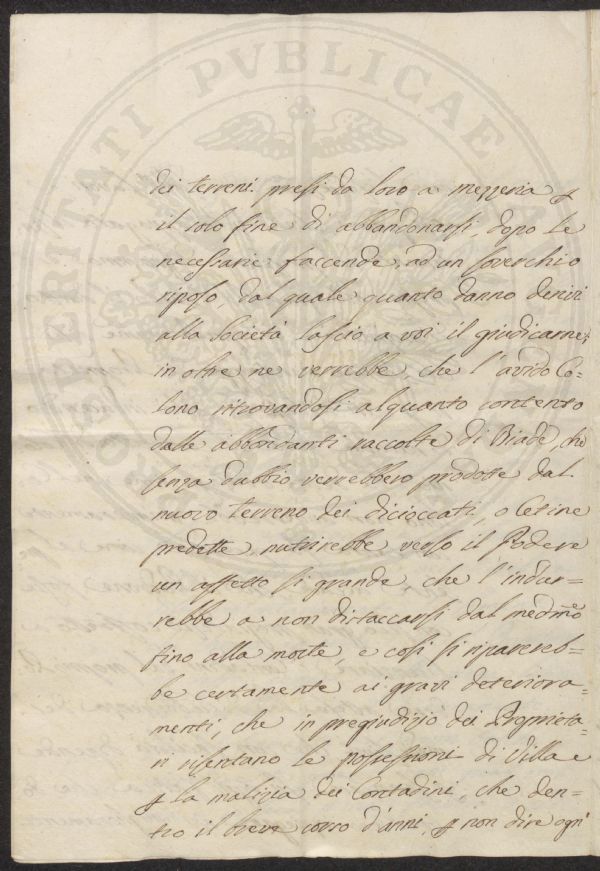 PROSPERITATI PVBLICAE
dei terreni presi da loro a mezzeria p
il solo fine di abbandonarsi, dopo le
necessarie faccende, ad un soverchio
riposo, dal quale quanto danno derivi
alla Società lascio a voi il giudicarne;
in oltre ne verrebbe, che l'avido Co=
lono ritrovandosi alquanto contento
dalle abbondanti raccolte di Biade, che
senza dubbio verrebbero prodotte dal
nuovo terreno dei dicioccati, o Cetine
predette, nutrirebbe verso il Podere
un affetto si grande, che l'indur=
rebbe a non distaccarsi dal medmo
fino alla morte, e così si riparereb=
be certamente ai gravi deteriora=
menti, che in pregiudizio dei Proprieta=
ri risentano le possessioni di Villa e
p la malizia dei Contadini, che den=
tro il breve corso d'anni, p non dire ogni